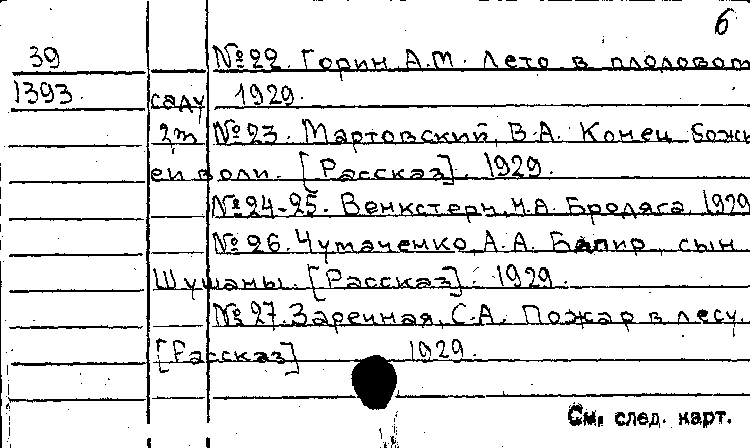 6
39 №22. Горин А.М. Лето в плодовом
1393. саду 1929.
2т №23. Мартовский, В.А. Конец божь
ей воли. [Рассказ]. 1929.
№24-25. Венкстерн, Н.А. Бродяга 1929
№26. Чумаченко, А.А. Бапир, сын
Шушаны. [Рассказ]. 1929.
№27. Заречная, С.А. Пожар в лесу.
[Рассказ] 1929.
См. след. карт.